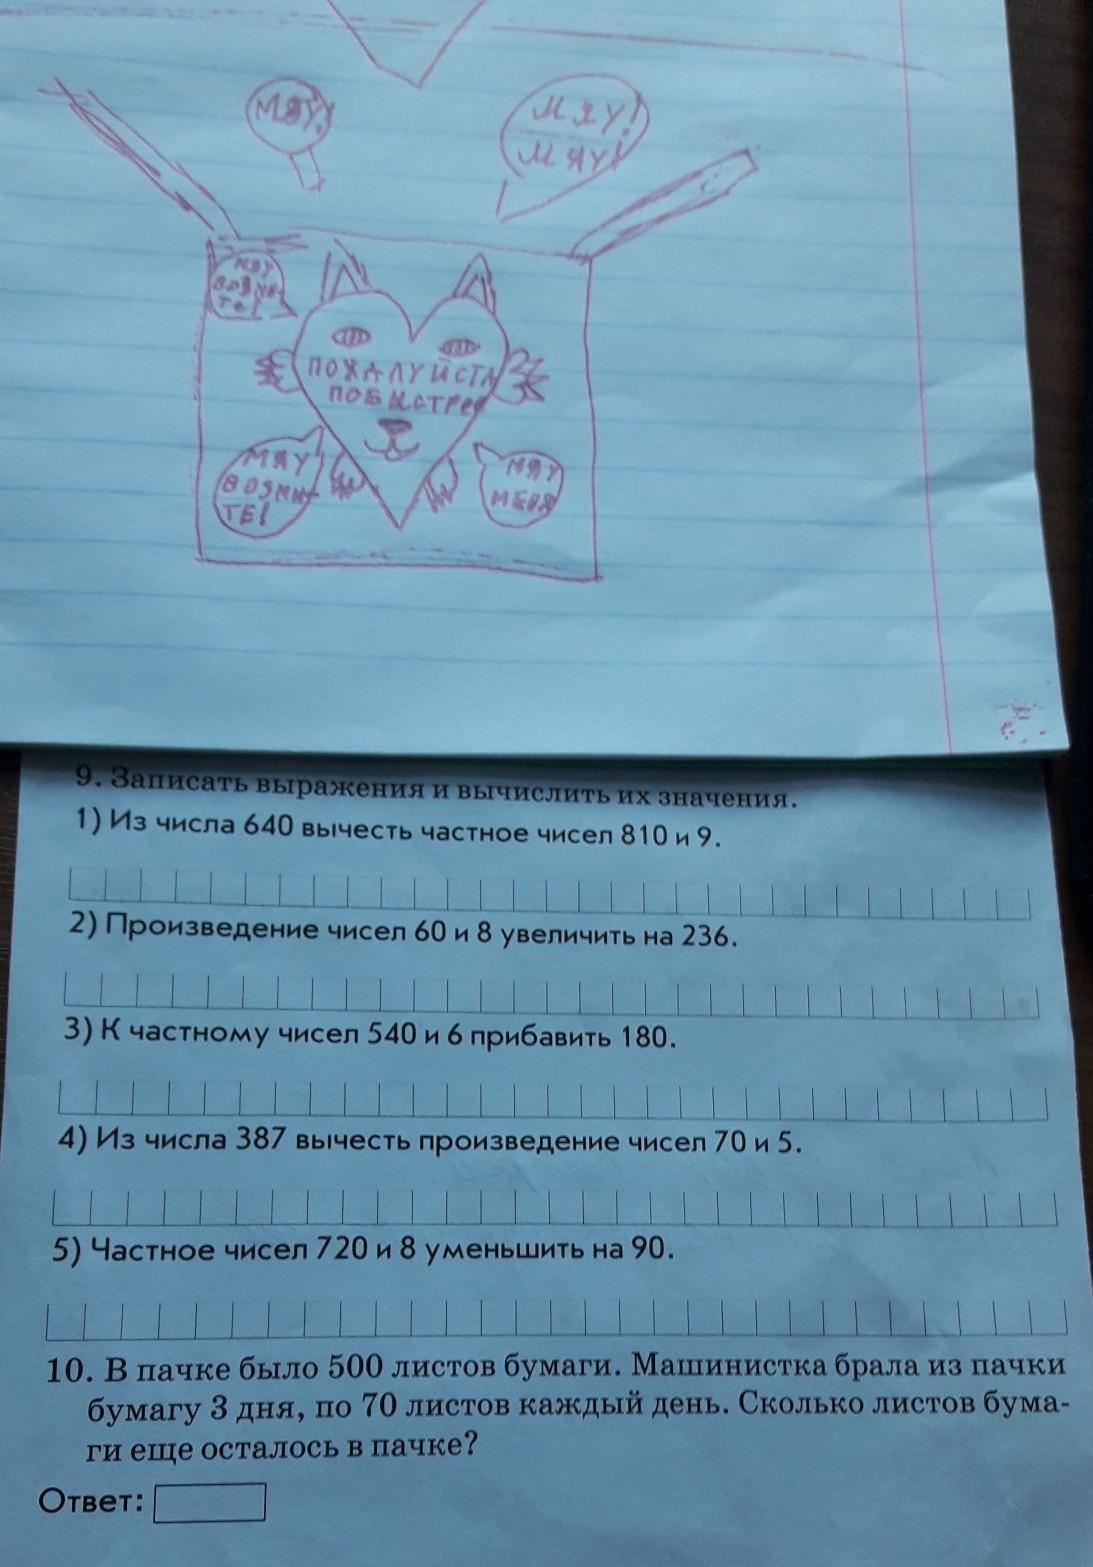 МЯУ!
МЯУ!
МЯУ!
МЯУ
ВОЗМИ-
ТЕ!
ПОЖАЛУЙСТА
ПОБЫСТРЕЕ
МЯУ
ВОЗМИ-
ТЕ!
МЯУ
МЕНЯ
9. Записать выражения и вычислить их значения.
1) Из числа 640 вычесть частное чисел 810 и 9.
2) Произведение чисел 60 и 8 увеличить на 236.
3) К частному чисел 540 и 6 прибавить 180.
4) Из числа 387 вычесть произведение чисел 70 и 5.
5) Частное чисел 720 и 8 уменьшить на 90.
10. В пачке было 500 листов бумаги. Машинистка брала из пачки
бумагу 3 дня, по 70 листов каждый день. Сколько листов бума-
ги еще осталось в пачке?
Ответ: